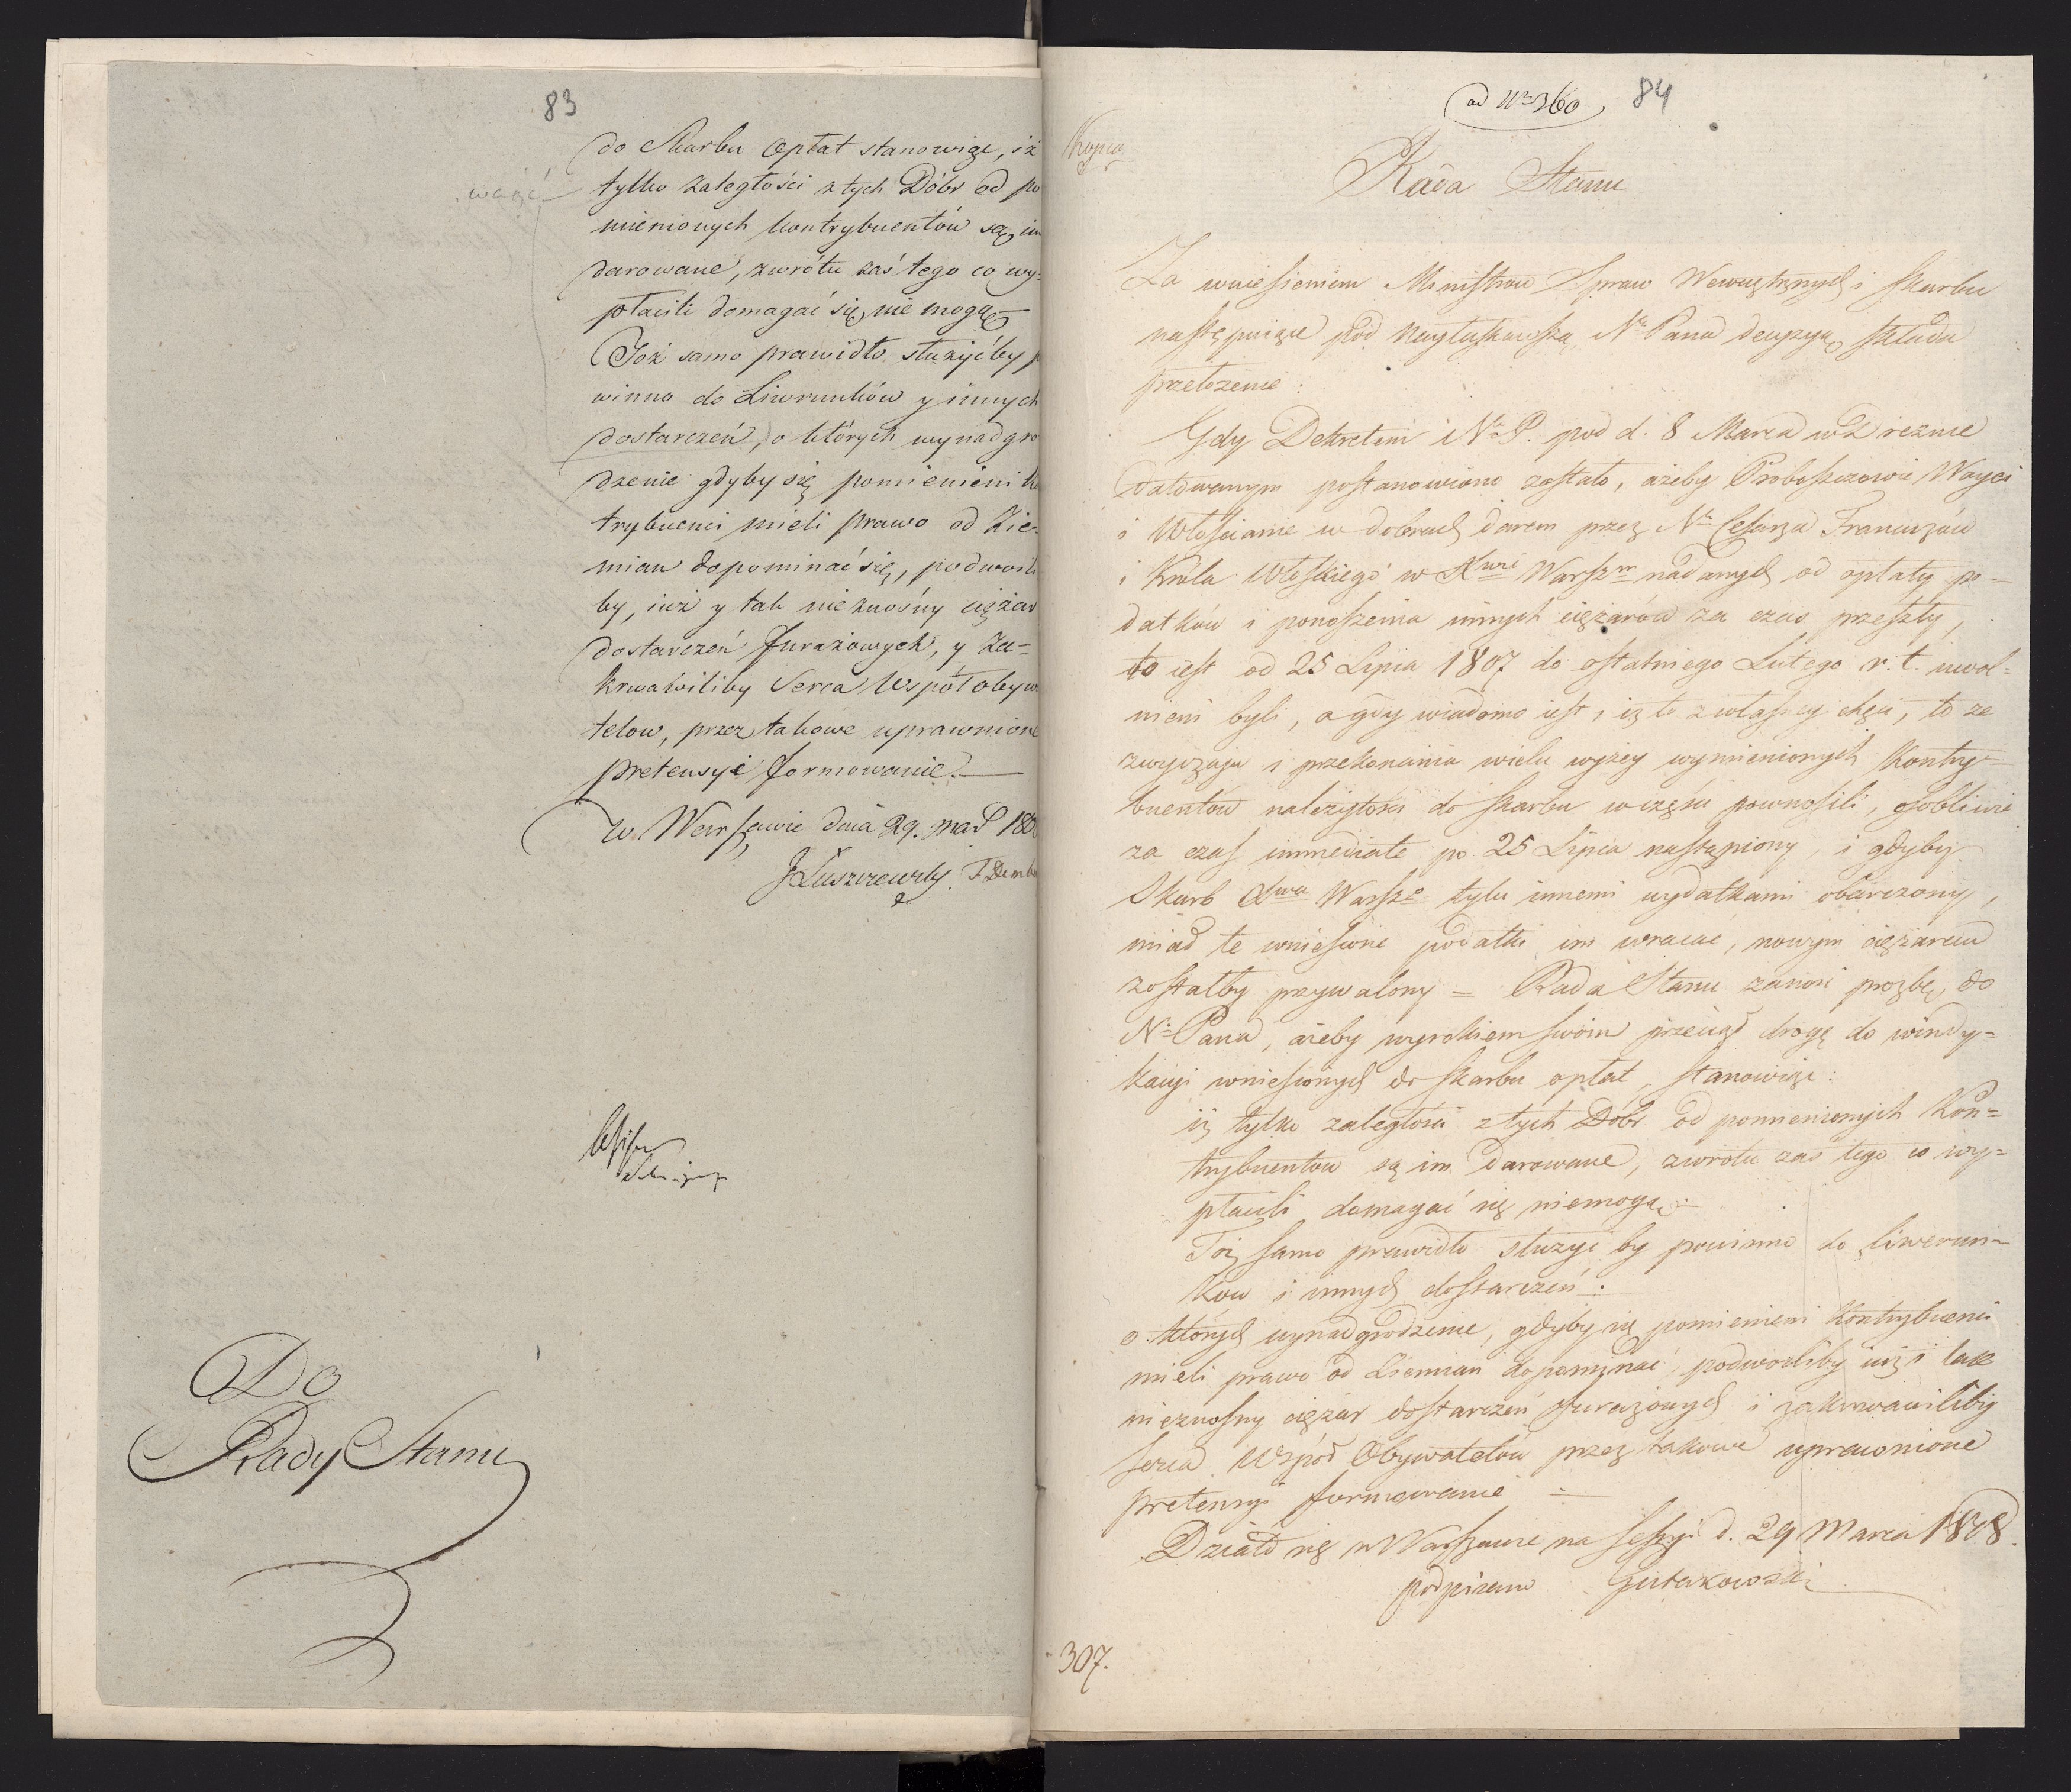 83
do Skarbu Opłat stanowiąc, iż
tylko zaległości z tych Dóbr od po
mienionych kontrybuentów są im
darowane, zwrótu zaś tego co wy-
płacili domagać się nie mogą
Toż samo prawidło służyćby p
winno do Liwrunków y innych
dostarczeń, o których wynadgro
dzenie gdyby się pomienieni ko
trybuenci mieli prawo od Zie-
mian dopominać się, podwoili
by, iuż y tak nieznośny ciężar
dostarczeń furażowych, y za-
krwawiliby Serca Współobywa
telow, przez takowe uprawnione
pretensyi formowanie.
w Warszawie dnia 29. mar 180
J Łuszczewsky. F Demb
Do
Rady Stanu
ad Nr 360 84
Kopia
Rada Stanu
Za wniesieniem Ministrow Spraw Wewnętrznych i Skarbu
następuiące pod naylaskawszą Nº Pana decyzyą składa
przełożenie:
Gdy Dekretem Nº P. pod d. 8 Marca w Dreznie
datowanym postanowiono zostało, ażeby Proboszczowie Wóyci
i Włościanie w dobrach darem przez Nº Cesarza Francuzów
i Króla Włoskiego w Xtwie Warszm nadanych od opłaty po-
datków i ponoszenia innych ciężarów za czas przeszły,
to iest od 25 Lipca 1807 do ostatniego Lutego r. t. uwol-
nieni byli, a gdy wiadomo iest, iż to z własney chęci, to ze
zwyczaju i przekonania wielu wyżey wymienionych Kontry-
buentów należytości do skarbu w części pownosili, osobliwie
za czas immediate po 25 Lipca nastąpiony, i gdyby
Skarb Xtwa Warszo tylu innemi wydatkami obarczony,
miał te wniesione podatki im wracać, nowym ciężarem
zostałby przywalony = Rada Stanu zanosi prozbę do
Nº Pana, ażeby wyrokiem swoim przeciął drogę do windy-
kacyi wniesionych do skarbu opłat, stanowiąc:
iż tylko zaległości z tych Dóbr od pomienionych Kon-
trybuentow są im darowane, zwrotu zaś tego co wy-
płacili domagać się niemogą.
Toż samo prawidło służyć by powinno do liwerun-
kow i innych dostarczeń:
o których wynadgrodzenie, gdyby się pomienieni Kontrybuenci
mieli prawo od Ziemian dopominać, podwoiliby iuż i tak
nieznośny ciężar dostarczeń furażowych i zakrwawiliby
serca Współ Obywatelow przez takowe uprawnione
pretensyi formowanie
Działo się w Warszawie na Sessyi d. 29 Marca 1808.
podpisano Gutakowski
307.